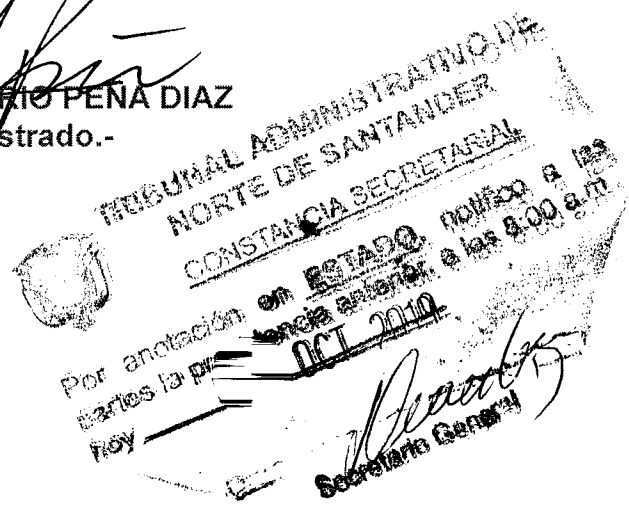 RIO PEÑA DIAZ
strado.-
TRIBUNAL ADMINISTRATIVO DE
NORTE DE SANTANDER
CONSTANCIA SECRETARIAL
Por anotación en ESTADO, notifico a las
partes la providencia anterior, a las 8:00 a.m.
hoy OCT 2019
Secretario General